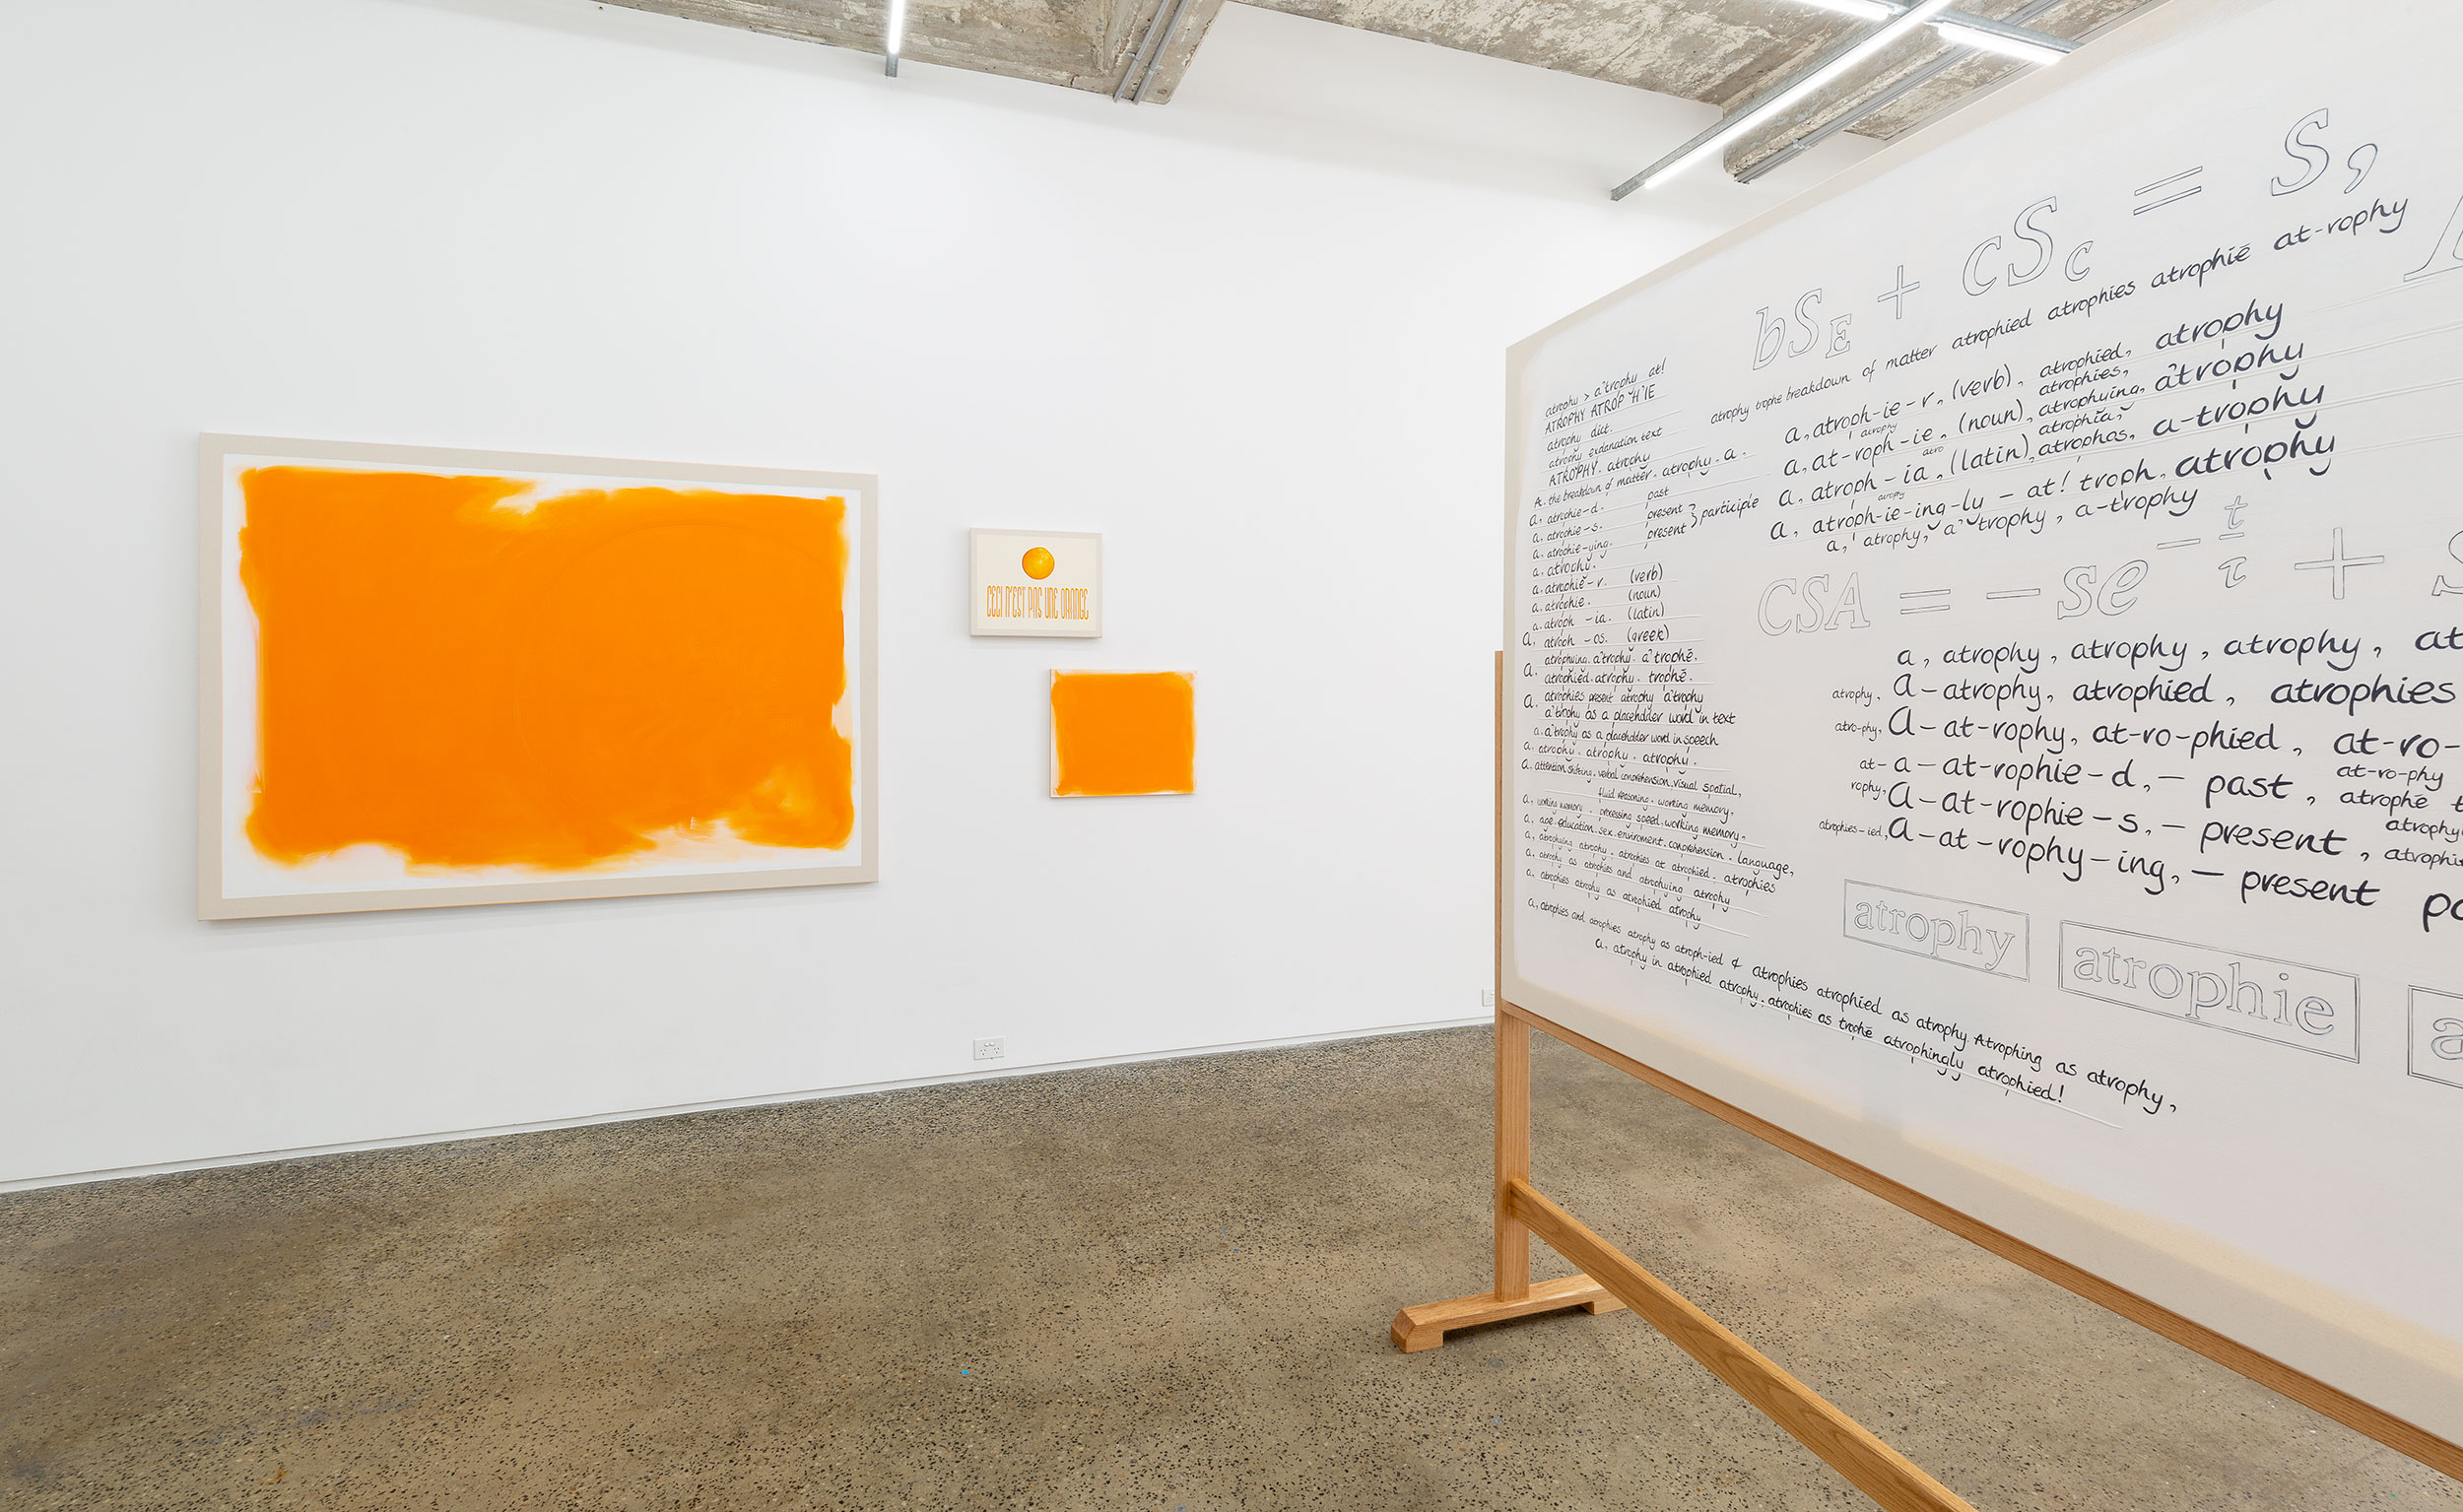 CECI N'EST PAS UNE ORANGE
bSE + cSc = S,
atrophy trophe breakdown of matter atrophied atrophies atrophiē at-rophy
a, atroph-ie-r, (verb), atrophied, atrophy
atrophies,
a, at-roph-ie, (noun), atrophying, a'trophy
atrophy
atrophia,
a, atroph-ia, (latin), atrophos, a-trophy
a, atroph-ie-ing-ly – at! troph, atrophy
a, atrophy, a'trophy, a-trophy
atrophy > a'trophy at!
ATROPHY ATROP'H'IE
atrophy dict.
atrophy explanation text
ATROPHY. atrophy
A. the breakdown of matter. atrophy. a.
a, atrophie-d. past
a, atrophie-s. present } participle
a. atrophie-ying. present
a. atrophy.
a. atrophie-r. (verb)
a. atrophie. (noun)
a. atroph -ia. (latin)
a, atroph -os. (greek)
atrophying. a'trophy. a'trophē.
a, atrophied. atrophy. trophē.
atrophies present atrophy a'trophy
a. a'trophy as a placeholder word in text
a. a'trophy as a placeholder word in speech
a, atrophy. atrophy. atrophy.
a, attention shifting. verbal comprehension, visual spatial,
fluid reasoning. working memory.
a, working memory. processing speed. working memory.
a, age. education. sex. enviroment. comprehension. language,
a, atrophying atrophy. atrophies at atrophied. atrophies
a, atrophy as atrophies and atrophying atrophy
a, atrophies atrophy as atrophied atrophy
a, atrophies and atrophies atrophy as atroph-ied & atrophies atrophied as atrophy. Atrophing as atrophy,
a, atrophy in atrophied atrophy. atrophies as trophē atrophingly atrophied!
CSA = – se – t/τ + S
a, atrophy, atrophy, atrophy, at
atrophy, a – atrophy, atrophied, atrophies
atro-phy, a – at-rophy, at-ro-phied, at-ro-
at- a – at-rophie-d, – past, at-ro-phy
atrophē
rophy, a – at-rophie – s, – present, atrophy
atrophies-ied, a – at-rophy – ing, – present
atrophy atrophie a